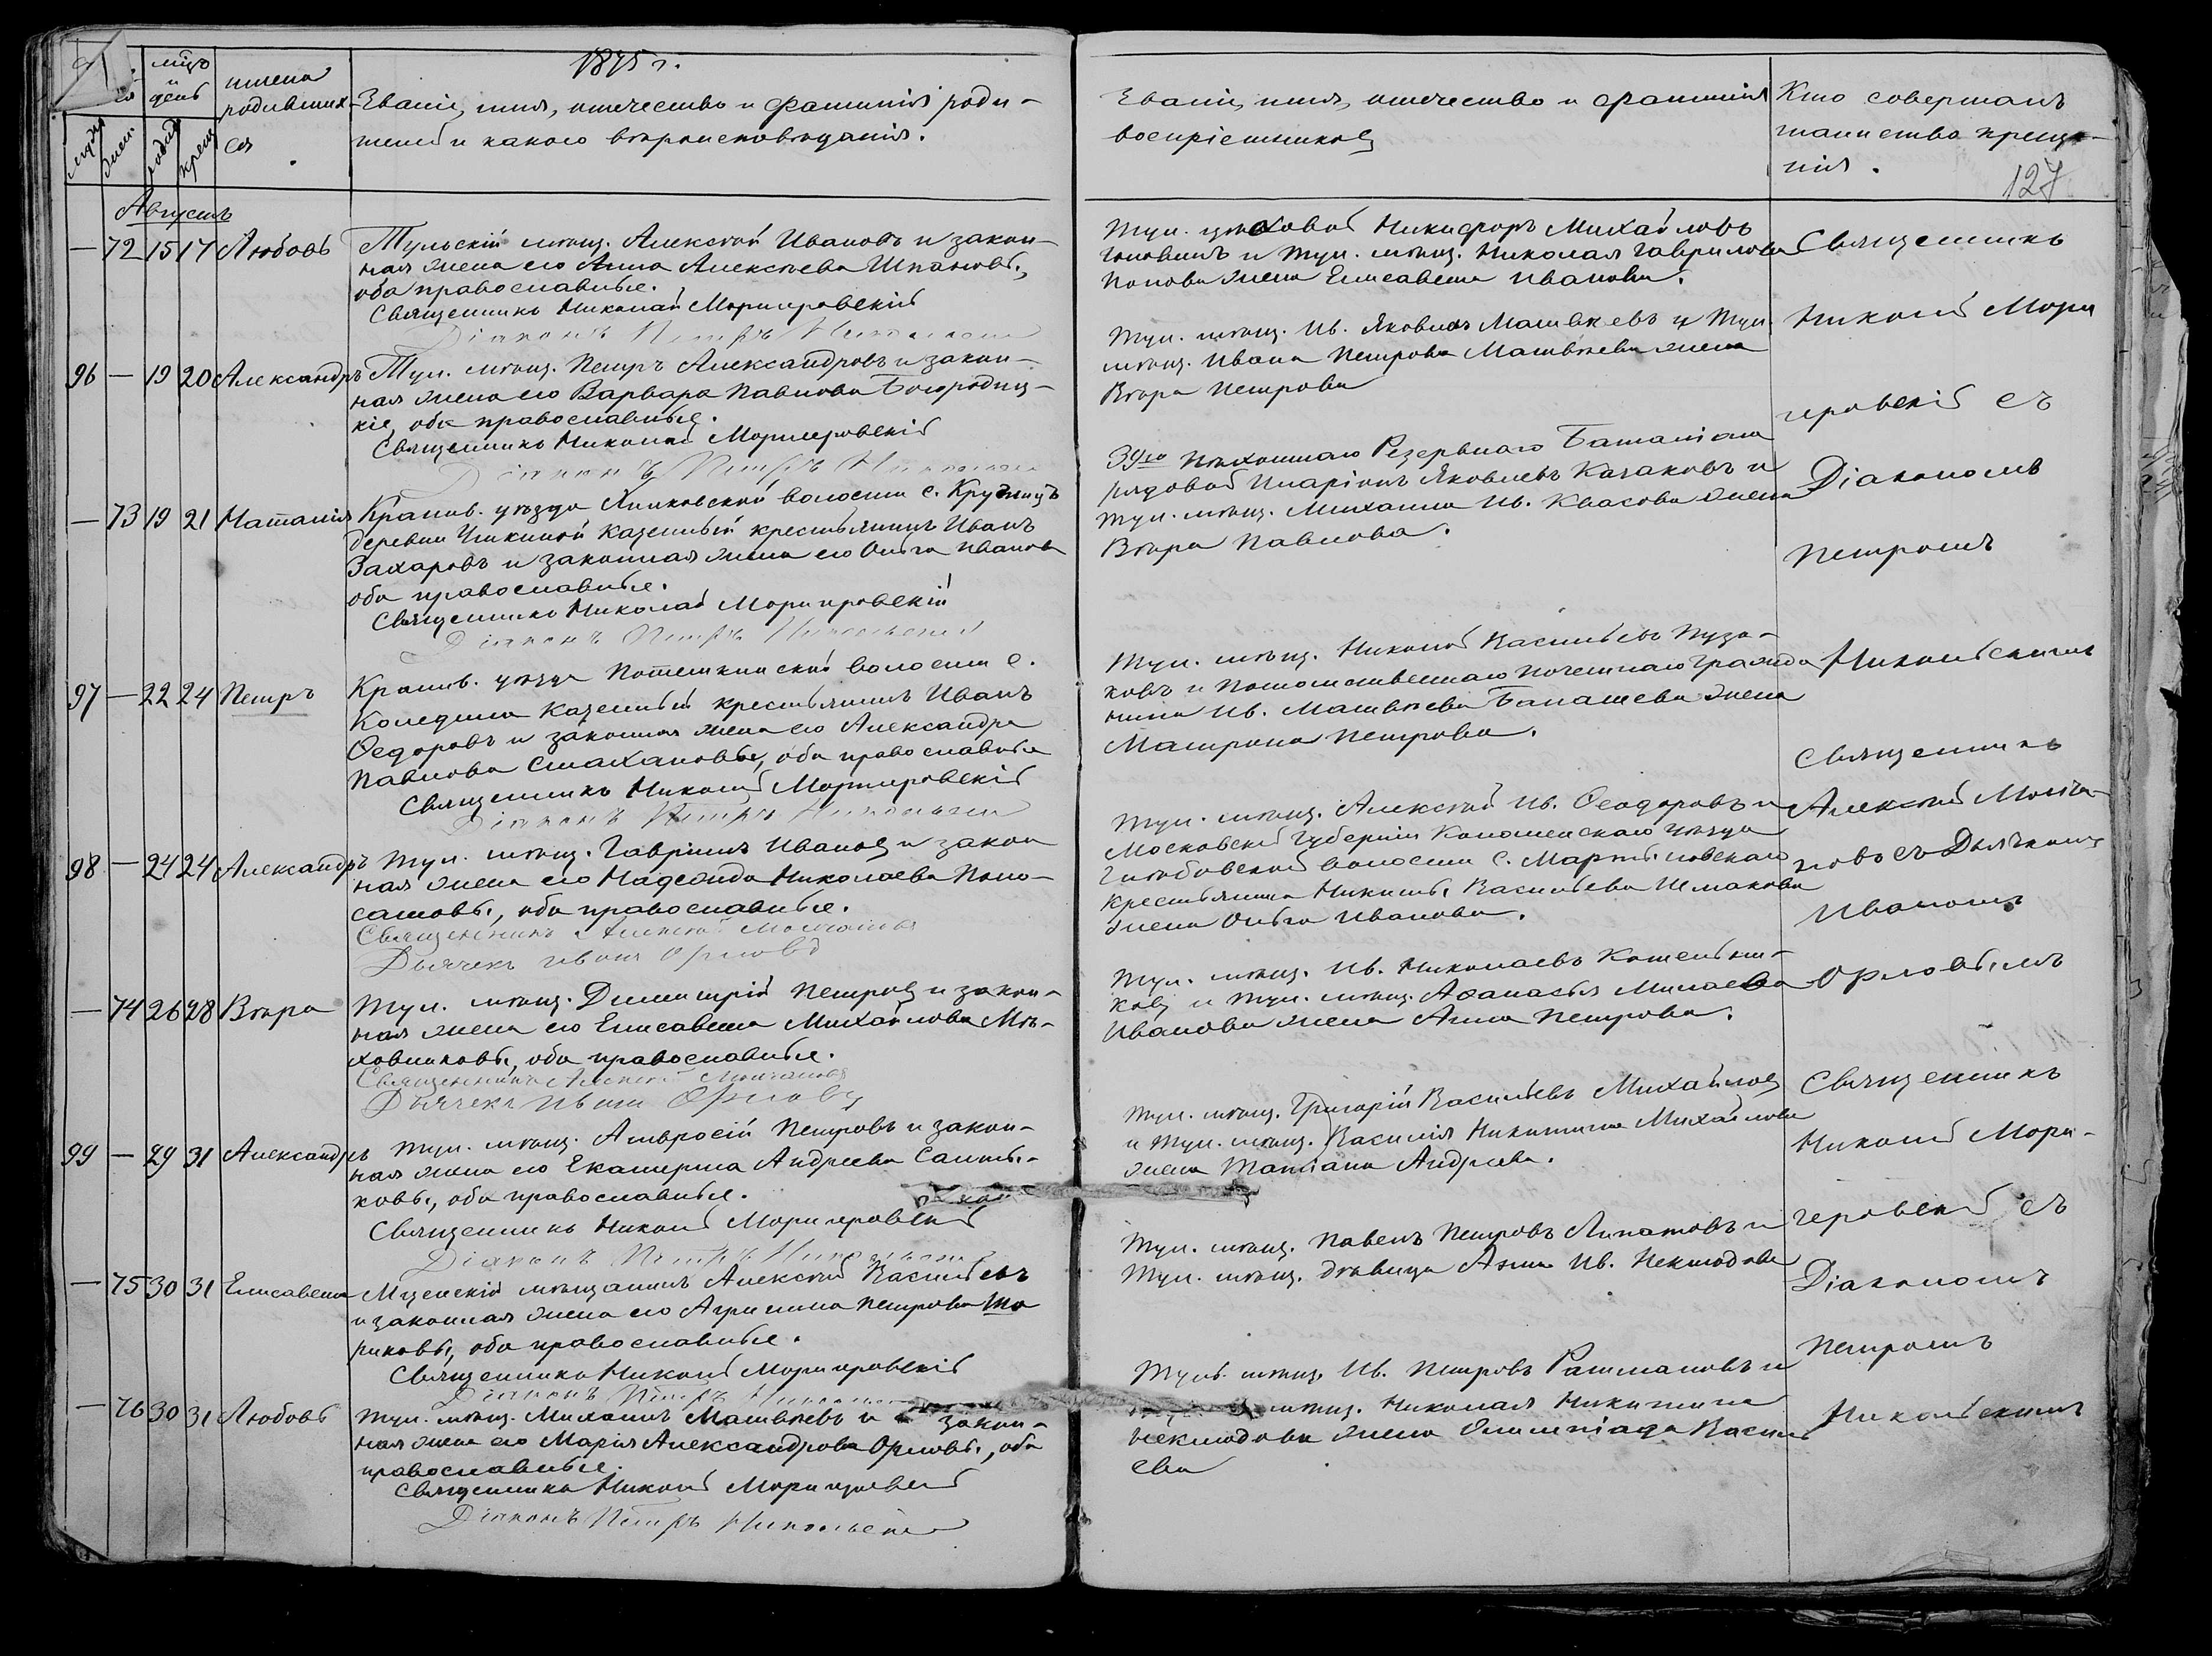 1875 г.
мѣсц
и
день
имена
родивших-
ся
Званіе, имя, отечество и фамилія роди-
телей и какого вѣроисповѣданія.
Званіе, имя, отечество и фамилія
воспріемниковъ
Кто совершалъ
таинство креще-
нія.
127
Августъ
— 72 15 17 Любовь
Тульскій мѣщ. Алексѣй Ивановъ и закон-
ная жена его Анна Алексѣева
оба православные.
Священникъ Николай Моригеровскій
Діаконъ Петръ Никольскій
Тул. цеховой Никифоръ Михайловъ
и Тул. мѣщ. Николая Гаврилова
Попова жена Елисавета Иванова.
Священникъ
Николай Мори
96 — 19 20 Александръ
Тул. мѣщ. Петръ Александровъ и закон-
ная жена его Варвара Павлова Богородиц-
кіе, оба православные.
Священникъ Николай Моригеровскій
Діаконъ Петръ Никольскій
Тул. мѣщ. Ив. Яковлевъ Матвѣевъ и Тул.
мѣщ. Ивана Петрова Матвѣева жена
Вѣра Петрова
геровскій съ
— 73 19 21 Наталія
Крапив. уѣзда волости с.
деревни казенный крестьянинъ Иванъ
Захаровъ и законная жена его Ольга Иванова
оба православные.
Священникъ Николай Моригеровскій
Діаконъ Петръ Никольскій
39го Пѣхотнаго Резервнаго Баталіона
рядовой Иларіонъ Яковлевъ Казаковъ и
тул. мѣщ. Михаила Ив. Квасова жена
Вѣра Павлова.
Діакономъ
Петромъ
97 — 22 24 Петръ
Крапив. уѣзда Потемкинской волости с.
казенный крестьянинъ Иванъ
Ѳедоровъ и законная жена его Александра
Павлова Стахановы, оба православные
Священникъ Николай Моригеровскій
Діаконъ Петръ Никольскій
Тул. мѣщ. Николай Васильевъ Пуза-
ковъ и Потомственнаго Почетнаго Гражда
нина Ив. Матвѣева Баташева жена
Матрона Петрова.
Никольскимъ
98 — 24 24 Александръ
Тул. мѣщ. Гавріилъ Ивановъ и закон
ная жена его Надежда Николаева Поло-
сатовы, оба православные.
Священникъ Алексѣй Молчановъ
Дьячекъ Иванъ Орловъ
Тул. мѣщ. Алексѣй Ив. Ѳеодоровъ и
Московской Губерніи Коломенскаго уѣзда
волости с.
крестьянина Никиты Васильева Шмакова
жена Ольга Иванова.
Священникъ
Алексѣй Молча-
новъ съ Дьячкомъ
Иваномъ
— 74 26 28 Вѣра
Тул. мѣщ. Димитрій Петровъ и закон-
ная жена его Елисавета Михайлова Мѣ-
ховниковы, оба православные.
Священникъ Алексѣй Молчановъ
Дьячекъ Иванъ Орловъ
Тул. мѣщ. Ив. Николаевъ Котельни-
ковъ и Тул. мѣщ. Аѳанасія Минаева
Иванова жена Анна Петрова.
Орловымъ
99 — 29 31 Александръ
Тул. мѣщ. Амвросій Петровъ и закон-
ная жена его Екатерина Андреева Салты-
ковы, оба православные.
Священникъ Николай Моригеровскій
Діаконъ Петръ Никольскій
Тул. мѣщ. Григорій Васильевъ Михайловъ
и Тул. мѣщ. Василія Никитина Михайлова
жена Татіана Андреева.
Священникъ
Николай Мори-
— 75 30 31 Елисавета
Мценскій мѣщанинъ Алексѣй Васильевъ
и законная жена его Агрипина Петрова
риковы, оба православные.
Священникъ Николай Моригеровскій
Діаконъ Петръ Никольскій
Тул. мѣщ. Павелъ Петровъ Липатовъ и
Тул. мѣщ. дѣвица Анна Ив. Неклюдова
геровскій съ
Діакономъ
— 76 30 31 Любовь
Тул. мѣщ. Михаилъ Матвѣевъ и закон-
ная жена его Марія Александрова Орловы, оба
православные.
Священникъ Николай Моригеровскій
Діаконъ Петръ Никольскій
Тул. мѣщ. Ив. Петровъ и
мѣщ. Николая Никитина
Неклюдова жена Олимпіада Василь
ева
Петромъ
Никольскимъ